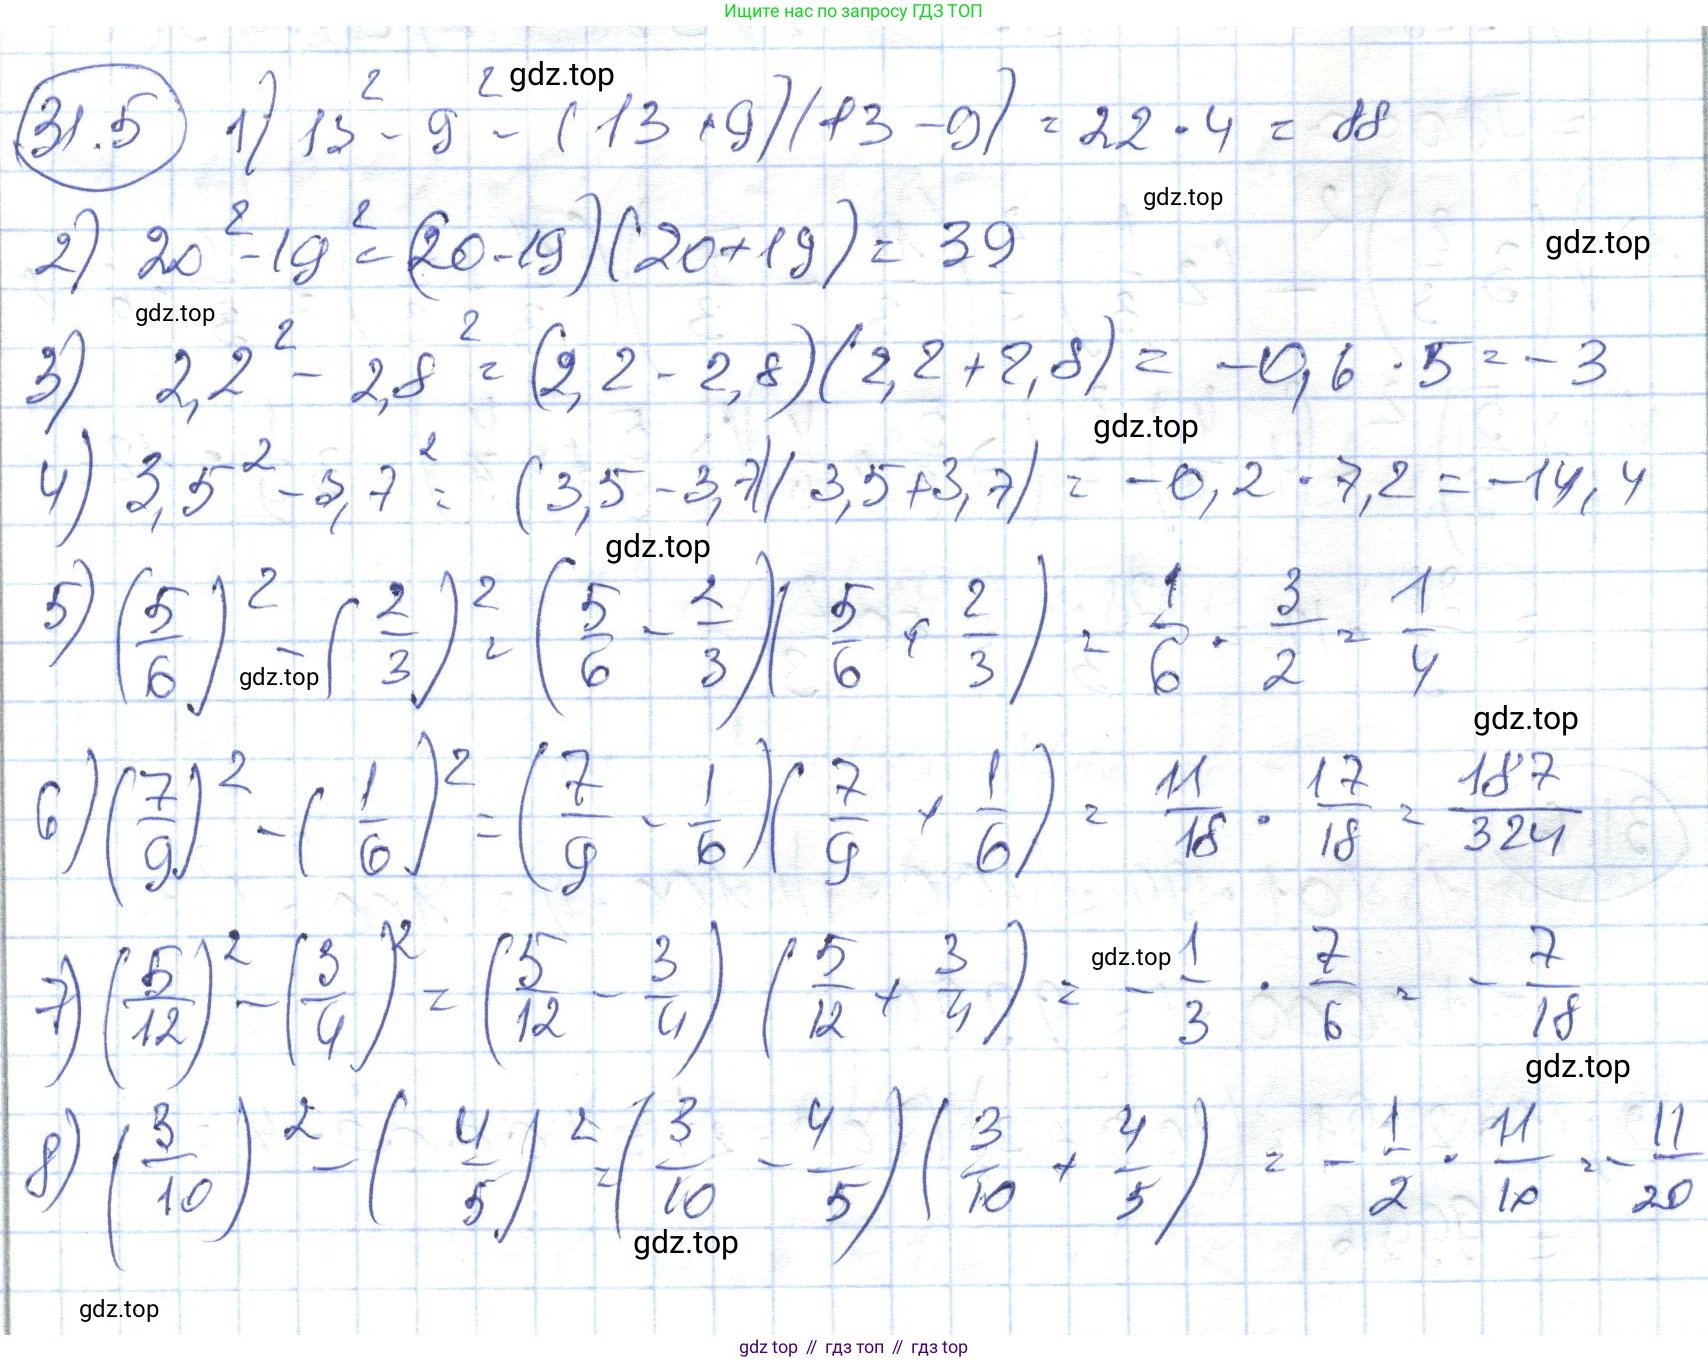 Ищите нас по запросу ГДЗ ТОП
gdz.top
31.5 1) 13² - 9² = (13 + 9)(13 - 9) = 22 · 4 = 88
gdz.top
2) 20² - 19² = (20 - 19)(20 + 19) = 39
gdz.top
gdz.top
3) 2,2² - 2,8² = (2,2 - 2,8)(2,2 + 2,8) = -0,6 · 5 = -3
gdz.top
4) 3,5² - 3,7² = (3,5 - 3,7)(3,5 + 3,7) = -0,2 · 7,2 = -14,4
gdz.top
5) (5/6)² - (2/3)² = (5/6 - 2/3)(5/6 + 2/3) = 1/6 · 3/2 = 1/4
gdz.top
gdz.top
6) (7/9)² - (1/6)² = (7/9 - 1/6)(7/9 + 1/6) = 11/18 · 17/18 = 187/324
7) (5/12)² - (3/4)² = (5/12 - 3/4)(5/12 + 3/4) = -1/3 · 7/6 = -7/18
gdz.top
gdz.top
8) (3/10)² - (4/5)² = (3/10 - 4/5)(3/10 + 4/5) = -1/2 · 11/10 = -11/20
gdz.top
gdz.top
gdz top // гдз топ // гдз top